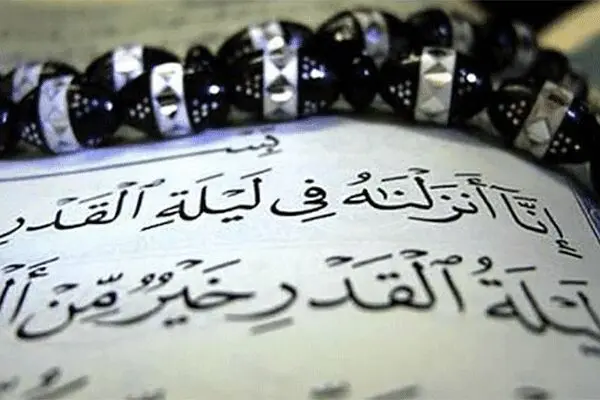 إِنَّآ أَنزَلْنَٰهُ فِى لَيْلَةِ ٱلْقَدْرِ
لَيْلَةُ ٱلْقَدْرِ خَيْرٌ مِّنْ